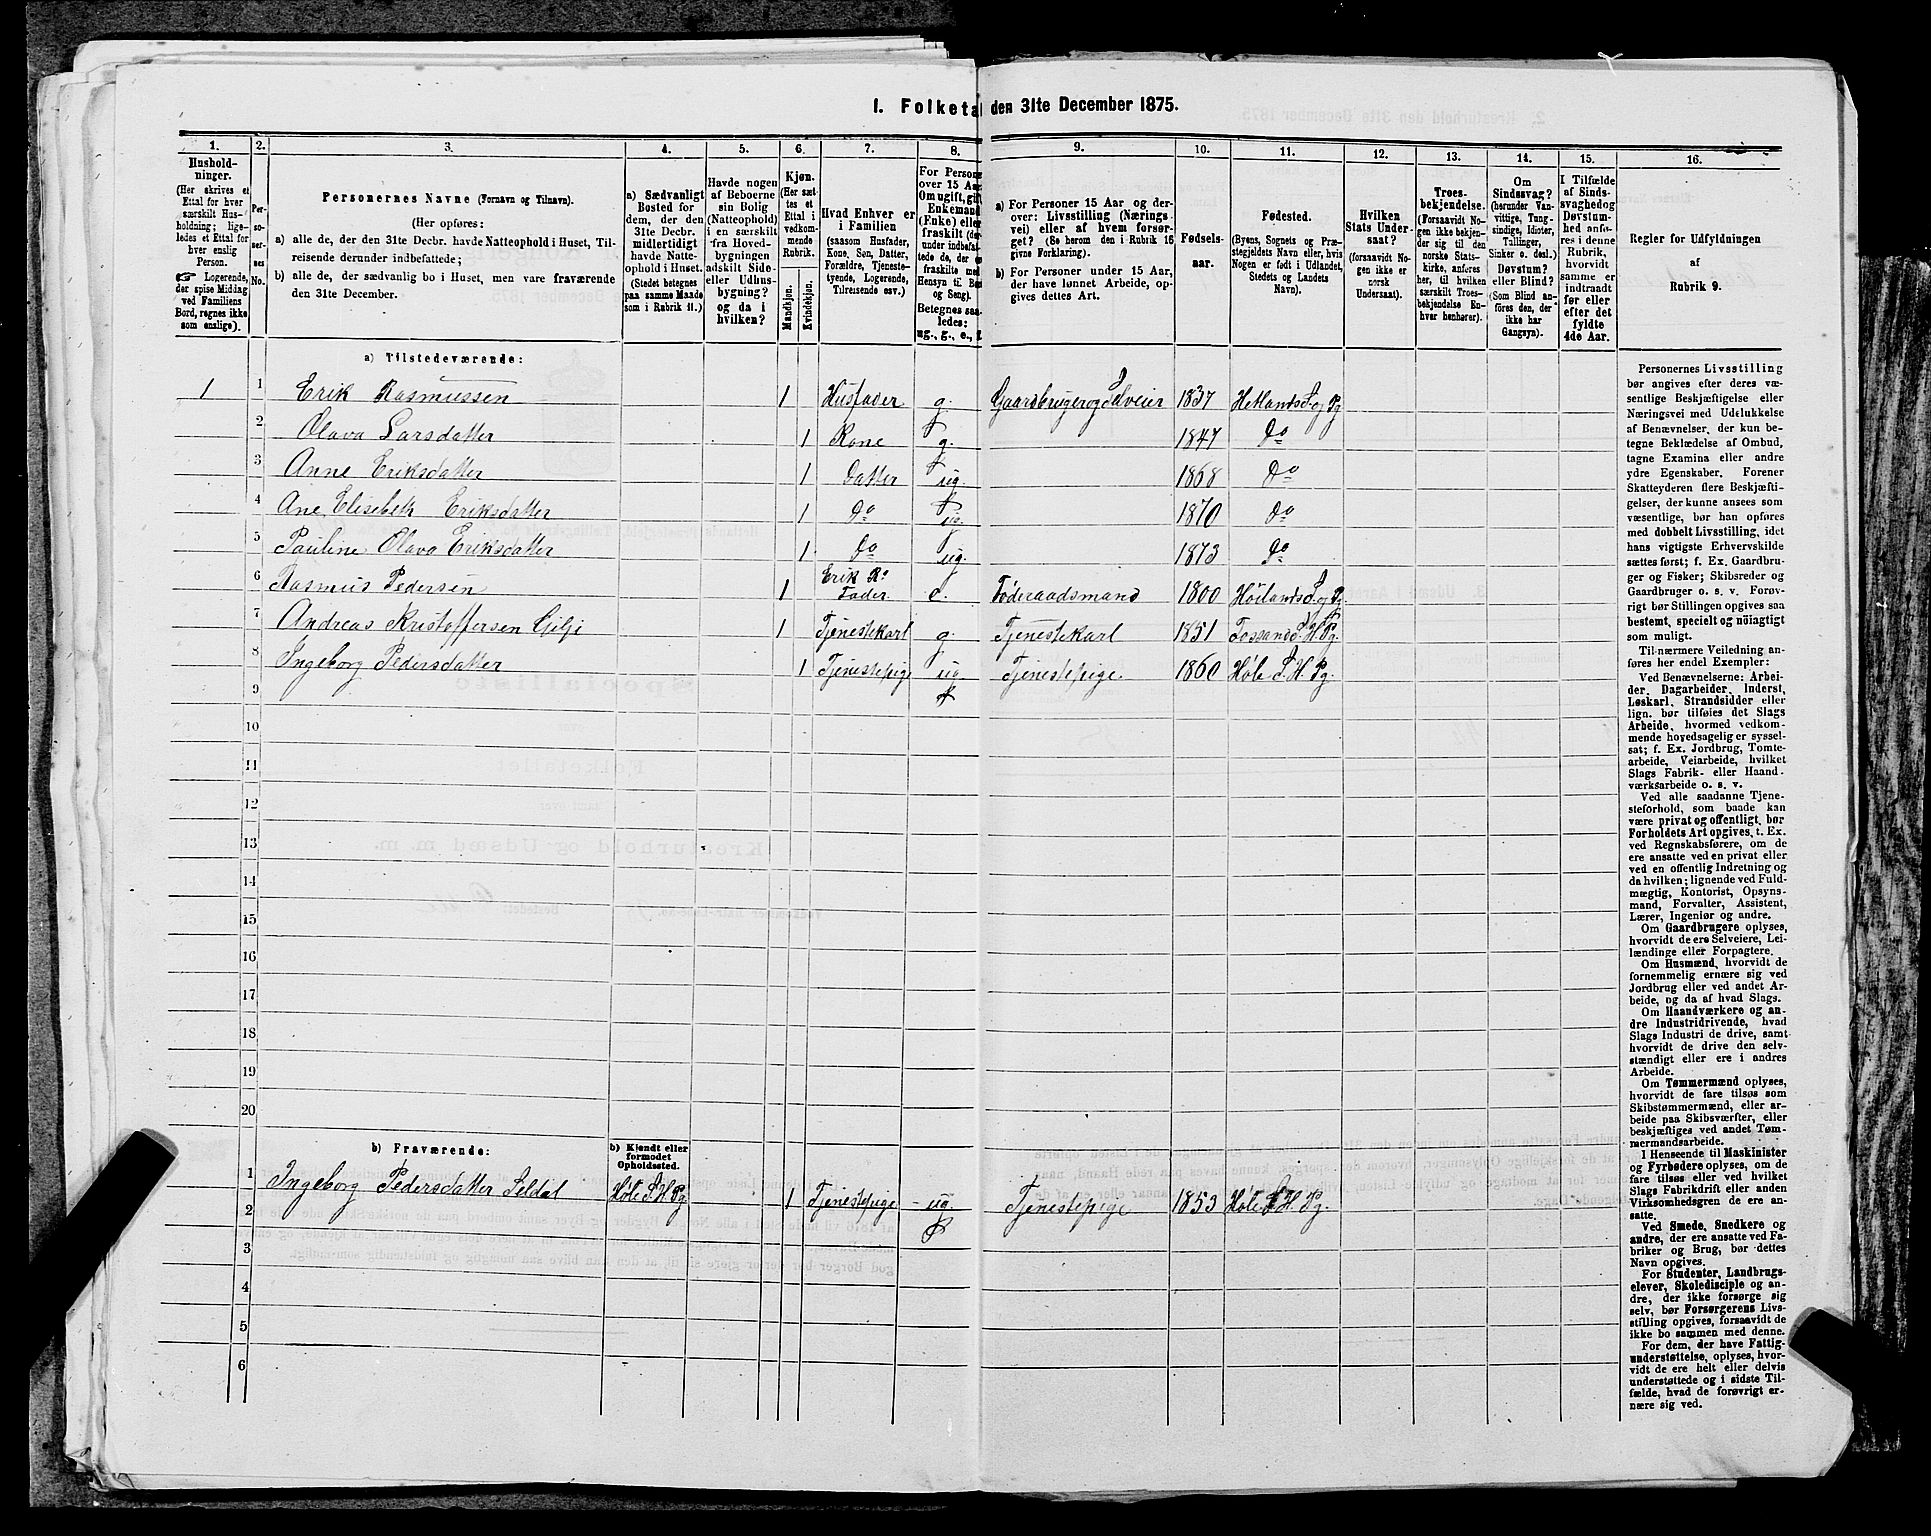 I. Folketa den 31te December 1875.
1. 2. 3. 4. 5. 6. 7. 8. 9. 10. 11. 12. 13. 14. 15. 16.
Hushold-
ninger.
(Her skrives et
Ettal for hver
særskilt Hus-
holdning; lige-
ledes et Ettal for
hver enslig
Person.
☞ Logerende,
der spise Middag
ved Familiens
Bord, regnes ikke
som enslige).
Per-
so-
ner-
nes
No.
Personernes Navne (Fornavn og Tilnavn).
(Her opføres:
a) alle de, der den 31te Decbr. havde Natteophold i Huset, Til-
reisende derunder indbefattede;
b) alle de, der sædvanlig bo i Huset, men vare fraværende
den 31te December.
a) Sædvanligt
Bosted for
dem, der den
31te Decbr.
midlertidigt
havde Natte-
ophold i Huset.
(Stedet betegnes
paa samme Maade
som i Rubrik 11.)
Havde nogen
af Beboerne
sin Bolig
(Natteophold)
i en særskilt
fra Hoved-
bygningen
adskilt Side-
eller Udhus-
bygning?
og da i
hvilken?
Kjøn.
(Her sæt-
tes et
Ettal i
vedkom-
mende
Rubrik.
Mandkjøn.
Kvindekjøn.
Hvad Enhver er
i Familien
(saasom Husfader,
Kone, Søn, Datter,
Forældre, Tjeneste-
tyende, Logerende,
Tilreisende osv.)
For Persone
over 15 Aar
Om ugift, gift
Enkemand
(Enke) eller
fraskilt (der-
under indbefat-
tede de, der ere
fraskilte med
Hensyn til Bord
og Seng).
Betegnes saa-
ledes:
ug., g., e., f.
a) For Personer 15 Aar og der-
over: Livsstilling (Nærings-
vei) eller af hvem forsør-
get? (Se herom den i Rubrik 16
givne Forklaring).
b) For Personer under 15 Aar,
der have lønnet Arbeide, op-
gives dettes Art.
Fødsels-
aar.
Fødested.
(Byens, Sognets og Præ-
stegjeldets Navn eller, hvis
Nogen er født i Udlandet,
Stedets og Landets
Navn).
Hvilken
Stats Under-
saat?
(forsaavidt No-
gen ikke er
norsk
Undersaat).
Troes-
bekjendelse.
(Forsaavidt No-
gen ikke bekjen-
der sig til den
norske Stats-
kirke, anføres
her, til hvilken
særskilt Troes-
bekjendelse En-
hver henhører).
Om
Sindssvag?
(herunder Van-
vittige, Tung-
sindige, Idioter,
Tullinger,
Sinker o. desl.)
Døvstum?
eller Blind?
(Som Blind an-
føres den, der
ikke har
Gangsyn).
I Tilfælde
af Sinds-
svaghed og
Døvstum-
hed anfø-
res i denne
Rubrik,
hvorvidt
samme er
indtraadt
før eller
efter det
fyldte
4de Aar.
Regler for Udfyldningen
af
Rubrik 9.
a) Tilstedeværende:
1 1 Erik Rasmussen 1 Husfader g. Gaardbruger og Selveier 1837 Hetlands S. og Pg
2 Olava Larsdatter 1 Kone g. 1847 Do
3 Anne Eriksdatter 1 Datter ug. 1868 Do
4 Ane Elisebeth Eriksdatter 1 Do ug. 1870 Do
5 Pauline Olava Eriksdatter 1 Do ug. 1873 Do
6 Rasmus Pedersen 1 Erik Rs Fader e. Føderaadsmand 1800 Høilands S. og Pg.
7 Andreas Kristoffersen Gilje 1 Tjenestekarl g. Tjenestekarl 1851 Fossand S. H. Pg.
8 Ingeborg Pedersdatter 1 Tjenestepige ug. Tjenestepige 1860 Høle S. H. Pg.
9
10
11
12
13
14
15
16
17
18
19
20
b) Fraværende:
b) Kjendt eller
formodet
Opholdssted.
1 Ingeborg Pedersdatter Seldal Høle S. H. Pg 1 Tjenestepige ug. Tjenestepige 1853 Høle S. H. Pg.
2
3
4
5
6
Personernes Livsstilling
bør angives efter deres væ-
sentlige Beskjæftigelse eller
Næringsvei med Udelukkelse
af Benævnelser, der kun be-
tegne Beklædelse af Ombud,
tagne Examina eller andre
ydre Egenskaber. Forener
Skatteyderen flere Beskjæfti-
gelser, der kunne ansees som
væsentlige, bør han opføres
med dobbelt Livsstilling, idet
hans vigtigste Erhvervskilde
sættes først; f. Ex. Gaardbru-
ger og Fisker; Skibsreder og
Gaardbruger o. s. v. Forøv-
rigt bør Stillingen opgives saa
bestemt, specielt og nøiagtigt
som muligt.
Til nærmere Veiledning an-
føres her endel Exempler:
Ved Benævnelserne: Arbei-
der, Dagarbeider, Inderst,
Løskarl, Strandsidder eller
lign. bør tilføies det Slags
Arbeide, hvormed vedkom-
mende hovedsagelig er syssel-
sat; f. Ex. Jordbrug, Tomte-
arbeide, Veiarbeide, hvilket
Slags Fabrik- eller Haand-
værksarbeide o. s. v.
Ved alle saadanne Tjene-
steforhold, som baade kan
være privat og offentligt, bør
Forholdets Art opgives, t. Ex.
ved Regnskabsførere, om de
ere ansatte ved en privat eller
ved en offentlig Indretning og
da hvilken; lignende ved Fuld-
mægtig, Kontorist, Opsyns-
mand, Forvalter, Assistent,
Lærer, Ingeniør og andre.
Om Gaardbrugere oplyses,
hvorvidt de ere Selveiere, Lei-
lændinge eller Forpagtere.
Om Husmænd, hvorvidt de
fornemmelig ernære sig ved
Jordbrug eller ved andet Ar-
beide, og da af hvad Slags.
Om Haandværkere og an-
dre Industridrivende, hvad
Slags Industri de drive, samt
hvorvidt de drive den selv-
stændigt eller ere i andres
Arbeide.
Om Tømmermænd oplyses,
hvorvidt de fare tilsøs som
Skibstømmermænd, eller ar-
beide paa Skibsværfter, eller
beskjæftiges ved andet Tøm-
mermandsarbeide.
I Henseende til Maskinister
og Fyrbødere oplyses, om de
fare tilsøs eller ved hvilket
Slags Fabrikdrift eller anden
Virksomhedsgren de ere an-
satte.
Ved Smede, Snedkere og
andre, der ere ansatte ved Fa-
briker og Brug, bør dettes
Navn opgives.
For Studenter, Landbrugs-
elever, Skoledisciple og an-
dre, der ikke forsørge sig
selv, bør Forsørgerens Livs-
stilling opgives, forsaavidt de
ikke bo sammen med denne.
For dem, der have Fattig-
understøttelse, oplyses, hvor-
vidt de ere helt eller delvis
understøttede og i sidste Til-
fælde, hvad de forøvrigt er-
nære sig ved.